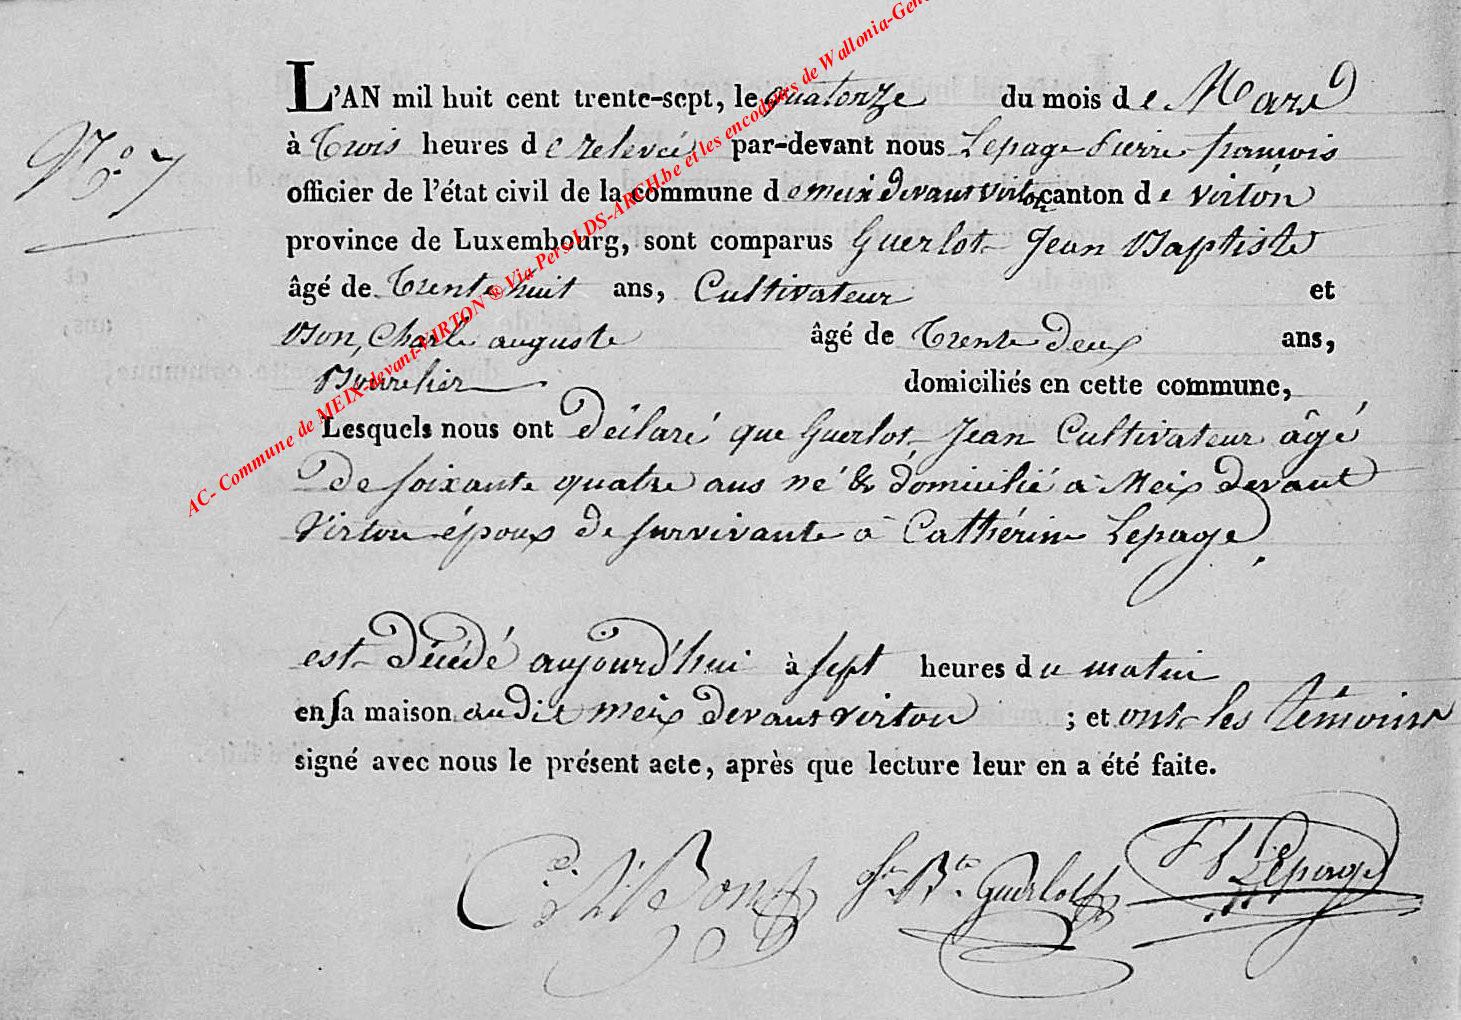 L'AN mil huit cent trente-sept, le quatorze du mois de Mars
N.º 7
à trois heures de relevée par-devant nous Lepage Pierre françois
officier de l'état civil de la commune de meix devant virton canton de virton
province de Luxembourg, sont comparus Guerlot Jean Baptiste
âgé de trente huit ans, Cultivateur et
Bon, Charle auguste âgé de trente deux ans,
Bourelier domiciliés en cette commune,
Lesquels nous ont déclaré que Guerlot Jean Cultivateur âgé
de soixante quatre ans né & domicilié à Meix devant
Virton époux de survivante à Cathérine Lepage.
est décédé aujourd'hui à sept heures du matin
en sa maison audit meix devant virton ; et ont les témoins
signé avec nous le présent acte, après que lecture leur en a été faite.
Bon Jn Bte Guerlot Lepage
AC- Commune de MEIX-devant-VIRTON ® Via Pers-LDS-ARCH.be et les encodeurs de Wallonia-Gen